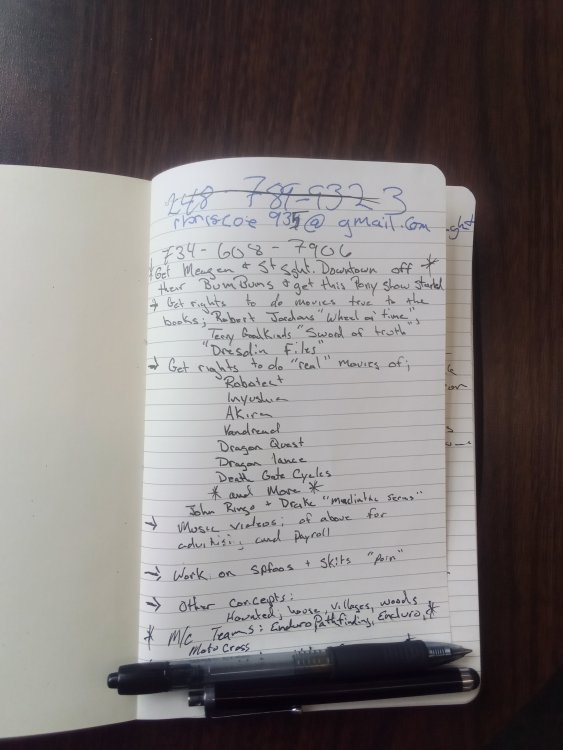 248-789-9323
rbriscoe935@gmail.com
734-608-7906
* Get Meagen & St Sght. Downtown off *
their BumBums & get this Pony show started
→ Get rights to do movies true to the
books; Robert Jordans "Wheel of time";
Terry Goodkinds "Sword of truth"
"Dresdin Files"
→ Get rights to do "real" movies of;
Robotect
Inyushia
Akira
Vandread
Dragon Quest
Dragon lance
Death Gate Cycles
* and More *
John Ringo + Drake
→ Music videos; of above for
and Payroll
→ Work on Spfoos + Skits "Poin"
→ Other concepts:
Haunted, house, villages, woods
* M/C Teams: Enduro Pathfinding, Enduro, *
Moto Cross